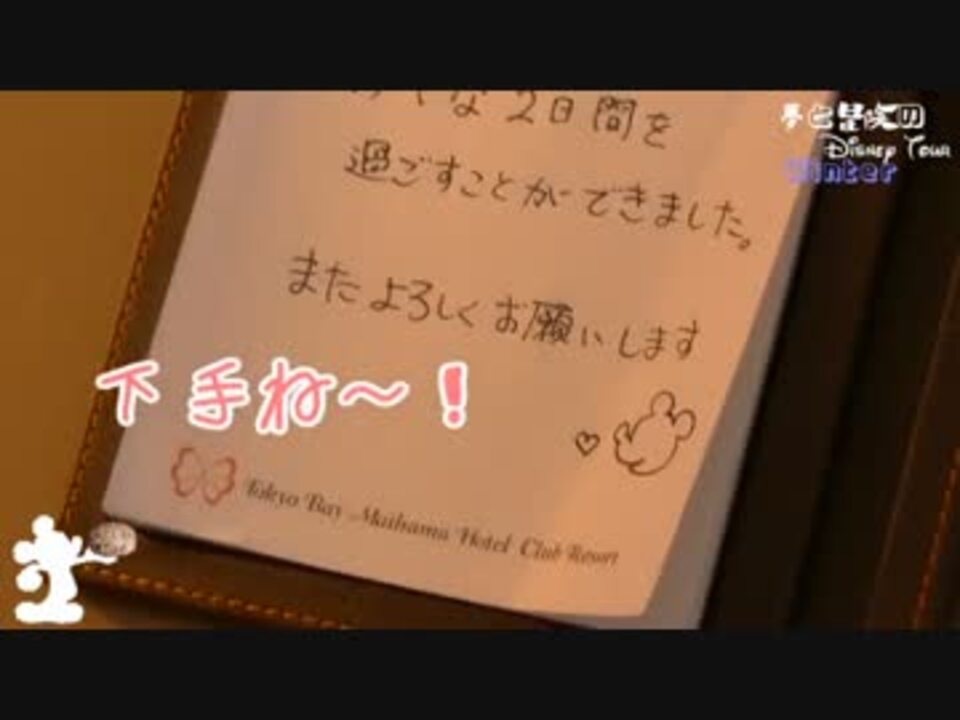 な2日間を
過ごすことができました。
またよろしくお願いします
下手ね～！
Tokyo Bay Maihama Hotel Club Resort
夢と冒険の
Disney Tour
Winter